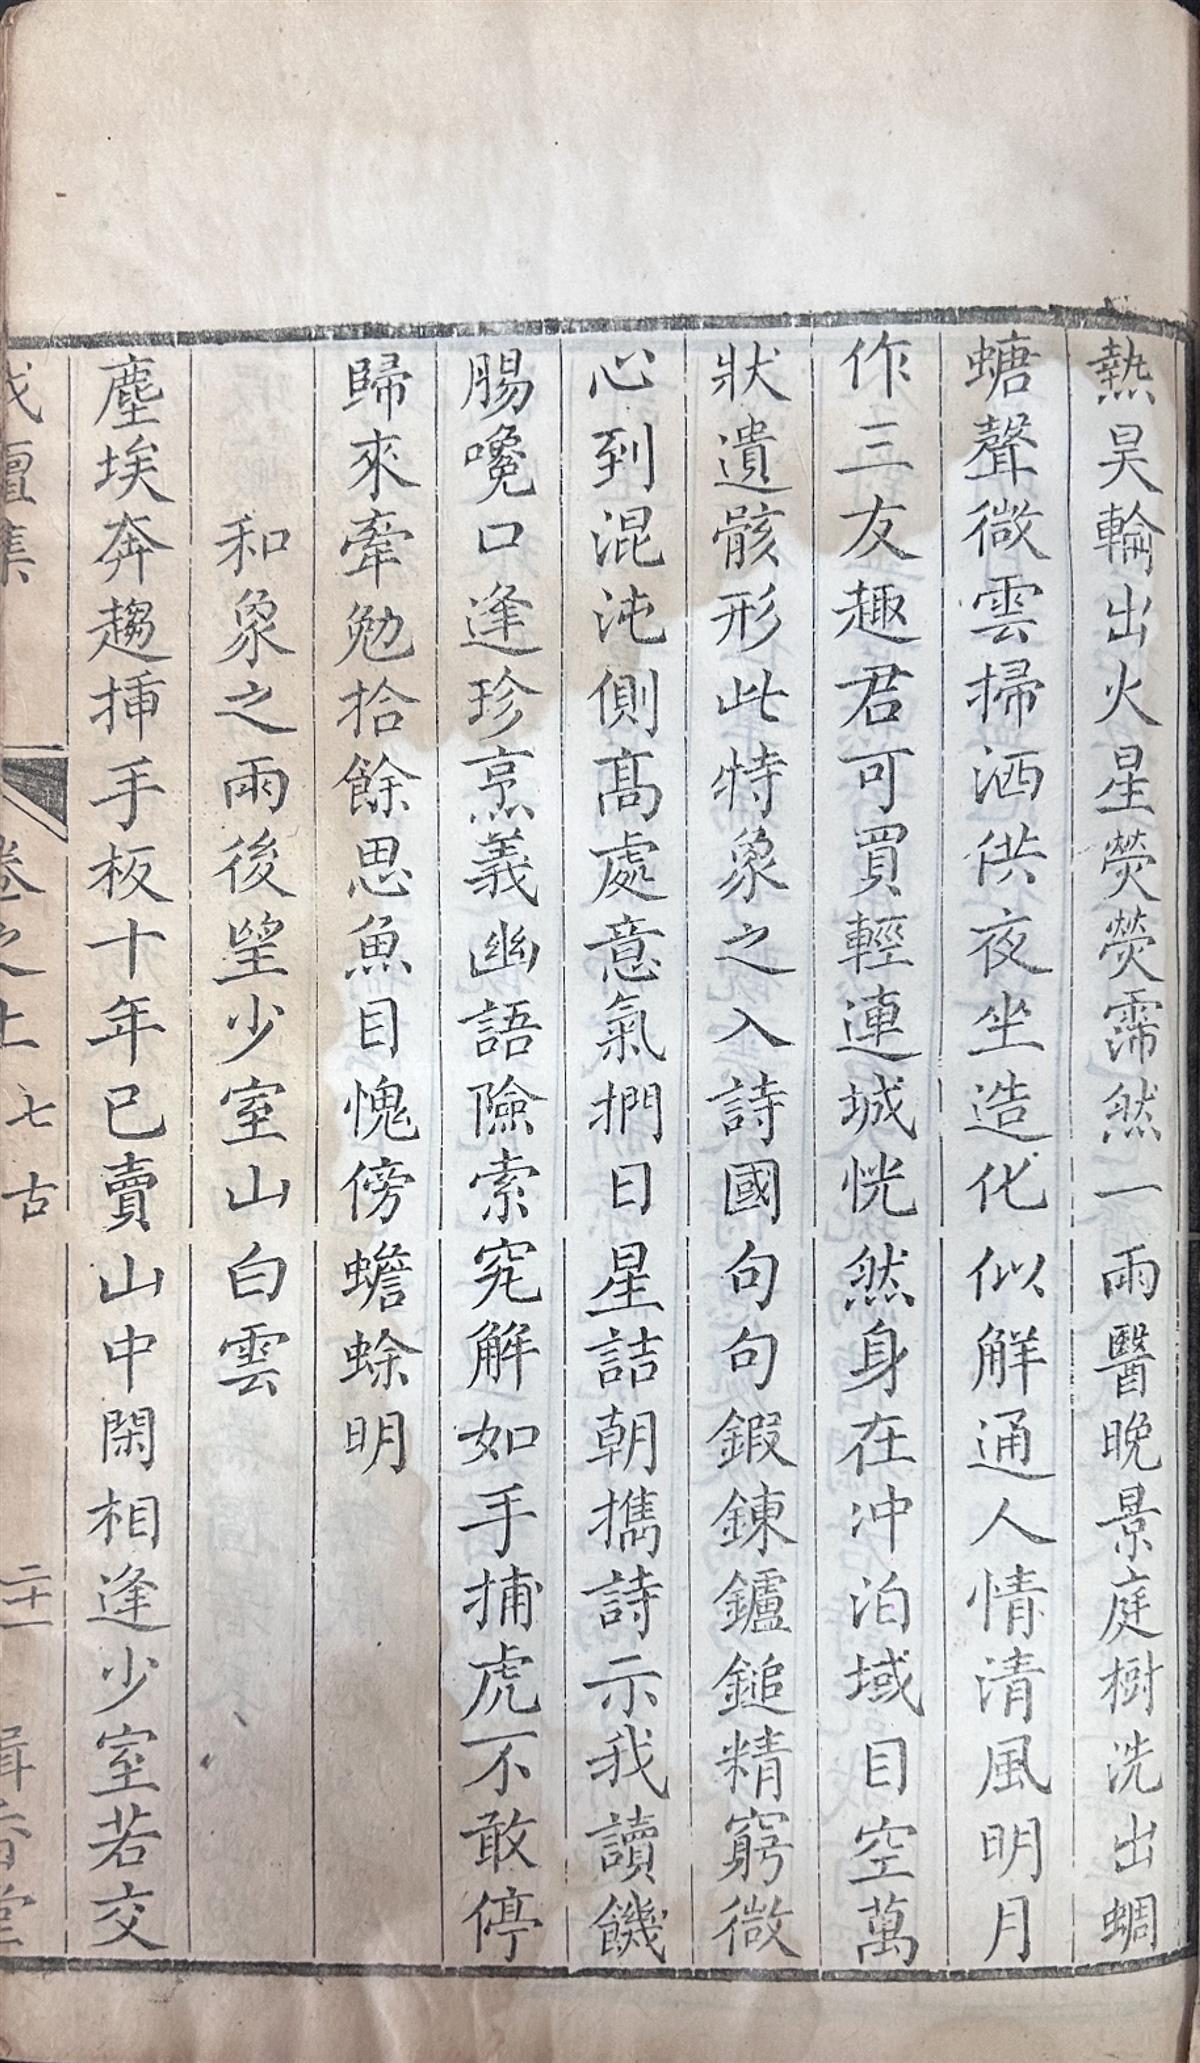 熱昊輪出火星熒熒霈然一雨醫晚景庭樹洗出蜩
螗聲微雲掃洒供夜坐造化似解通人情清風明月
作三友趣君可買輕連城恍然身在冲泊域目空萬
狀遺骸形此特象之入詩國句句鍜鍊鑪鎚精窮微
心到混沌側髙處意氣捫日星詰朝擕詩示我讀饑
腸嚵口逢珍烹義幽語險索究解如手捕虎不敢停
歸來牽勉拾餘思魚目愧傍蟾蜍明
和象之雨後望少室山白雲
塵埃奔趨揷手板十年已賣山中閑相逢少室若交
伐檀集
卷之上
七古
二十一
緝香堂